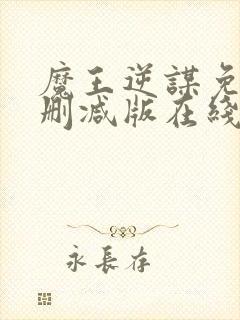 魔王逆謀免
刪減版在綫
永長存